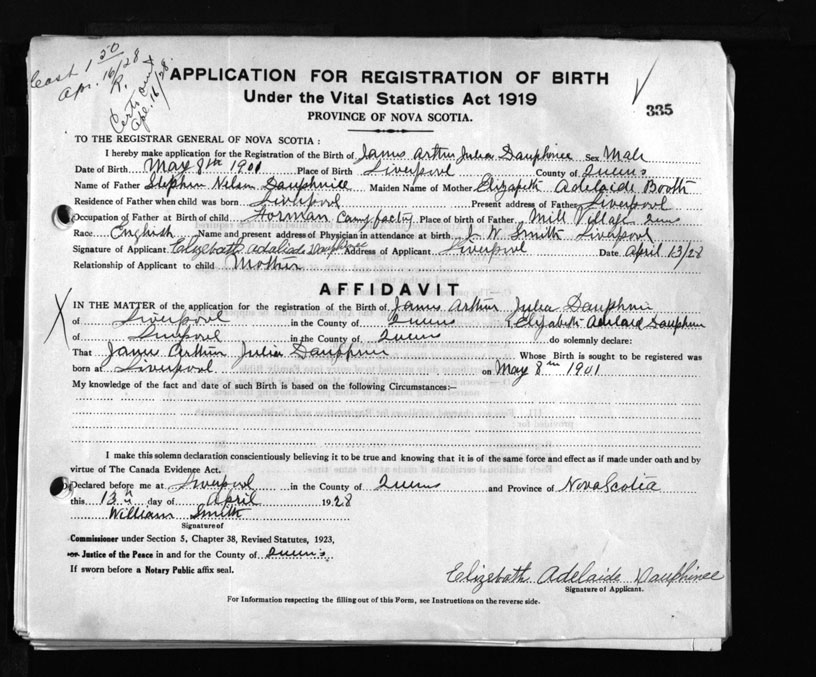 Cash 1 50
Apr. 16/28
R.
Certs out
Apr. 16/28.
APPLICATION FOR REGISTRATION OF BIRTH
Under the Vital Statistics Act 1919
335
PROVINCE OF NOVA SCOTIA.
TO THE REGISTRAR GENERAL OF NOVA SCOTIA :
I hereby make application for the Registration of the Birth of James Arthur Julia Dauphinee Sex Male
Date of Birth May 8th 1901 Place of Birth Liverpool County of Queens
Name of Father Stephen Nelson Dauphinee Maiden Name of Mother Elizabeth Adelaide Booth
Residence of Father when child was born Liverpool Present address of Father Liverpool
Occupation of Father at Birth of child Forman factory Place of birth of Father Mill Village Queens
Race English Name and present address of Physician in attendance at birth J. W. Smith Liverpool
Signature of Applicant Elizebath Adelaide Dauphinee Address of Applicant Liverpool Date April 13/28
Relationship of Applicant to child Mother
AFFIDAVIT
IN THE MATTER of the application for the registration of the Birth of James Arthur Julia Dauphinee
of Liverpool in the County of Queens Elizabeth Adelaid Dauphinee
of Liverpool in the County of Queens do solemnly declare:
That James Arthur Julia Dauphinee Whose Birth is sought to be registered was
born at Liverpool on May 8th 1901
My knowledge of the fact and date of such Birth is based on the following Circumstances:—
I make this solemn declaration conscientiously believing it to be true and knowing that it is of the same force and effect as if made under oath and by
virtue of The Canada Evidence Act.
Declared before me at Liverpool in the County of Queens and Province of Nova Scotia
this 13th day of April 1928
William Smith
Signature of
Commissioner under Section 5, Chapter 38, Revised Statutes, 1923,
or Justice of the Peace in and for the County of Queens
If sworn before a Notary Public affix seal.
Elizebath Adelaide Dauphinee
Signature of Applicant.
For Information respecting the filling out of this Form, see Instructions on the reverse side.